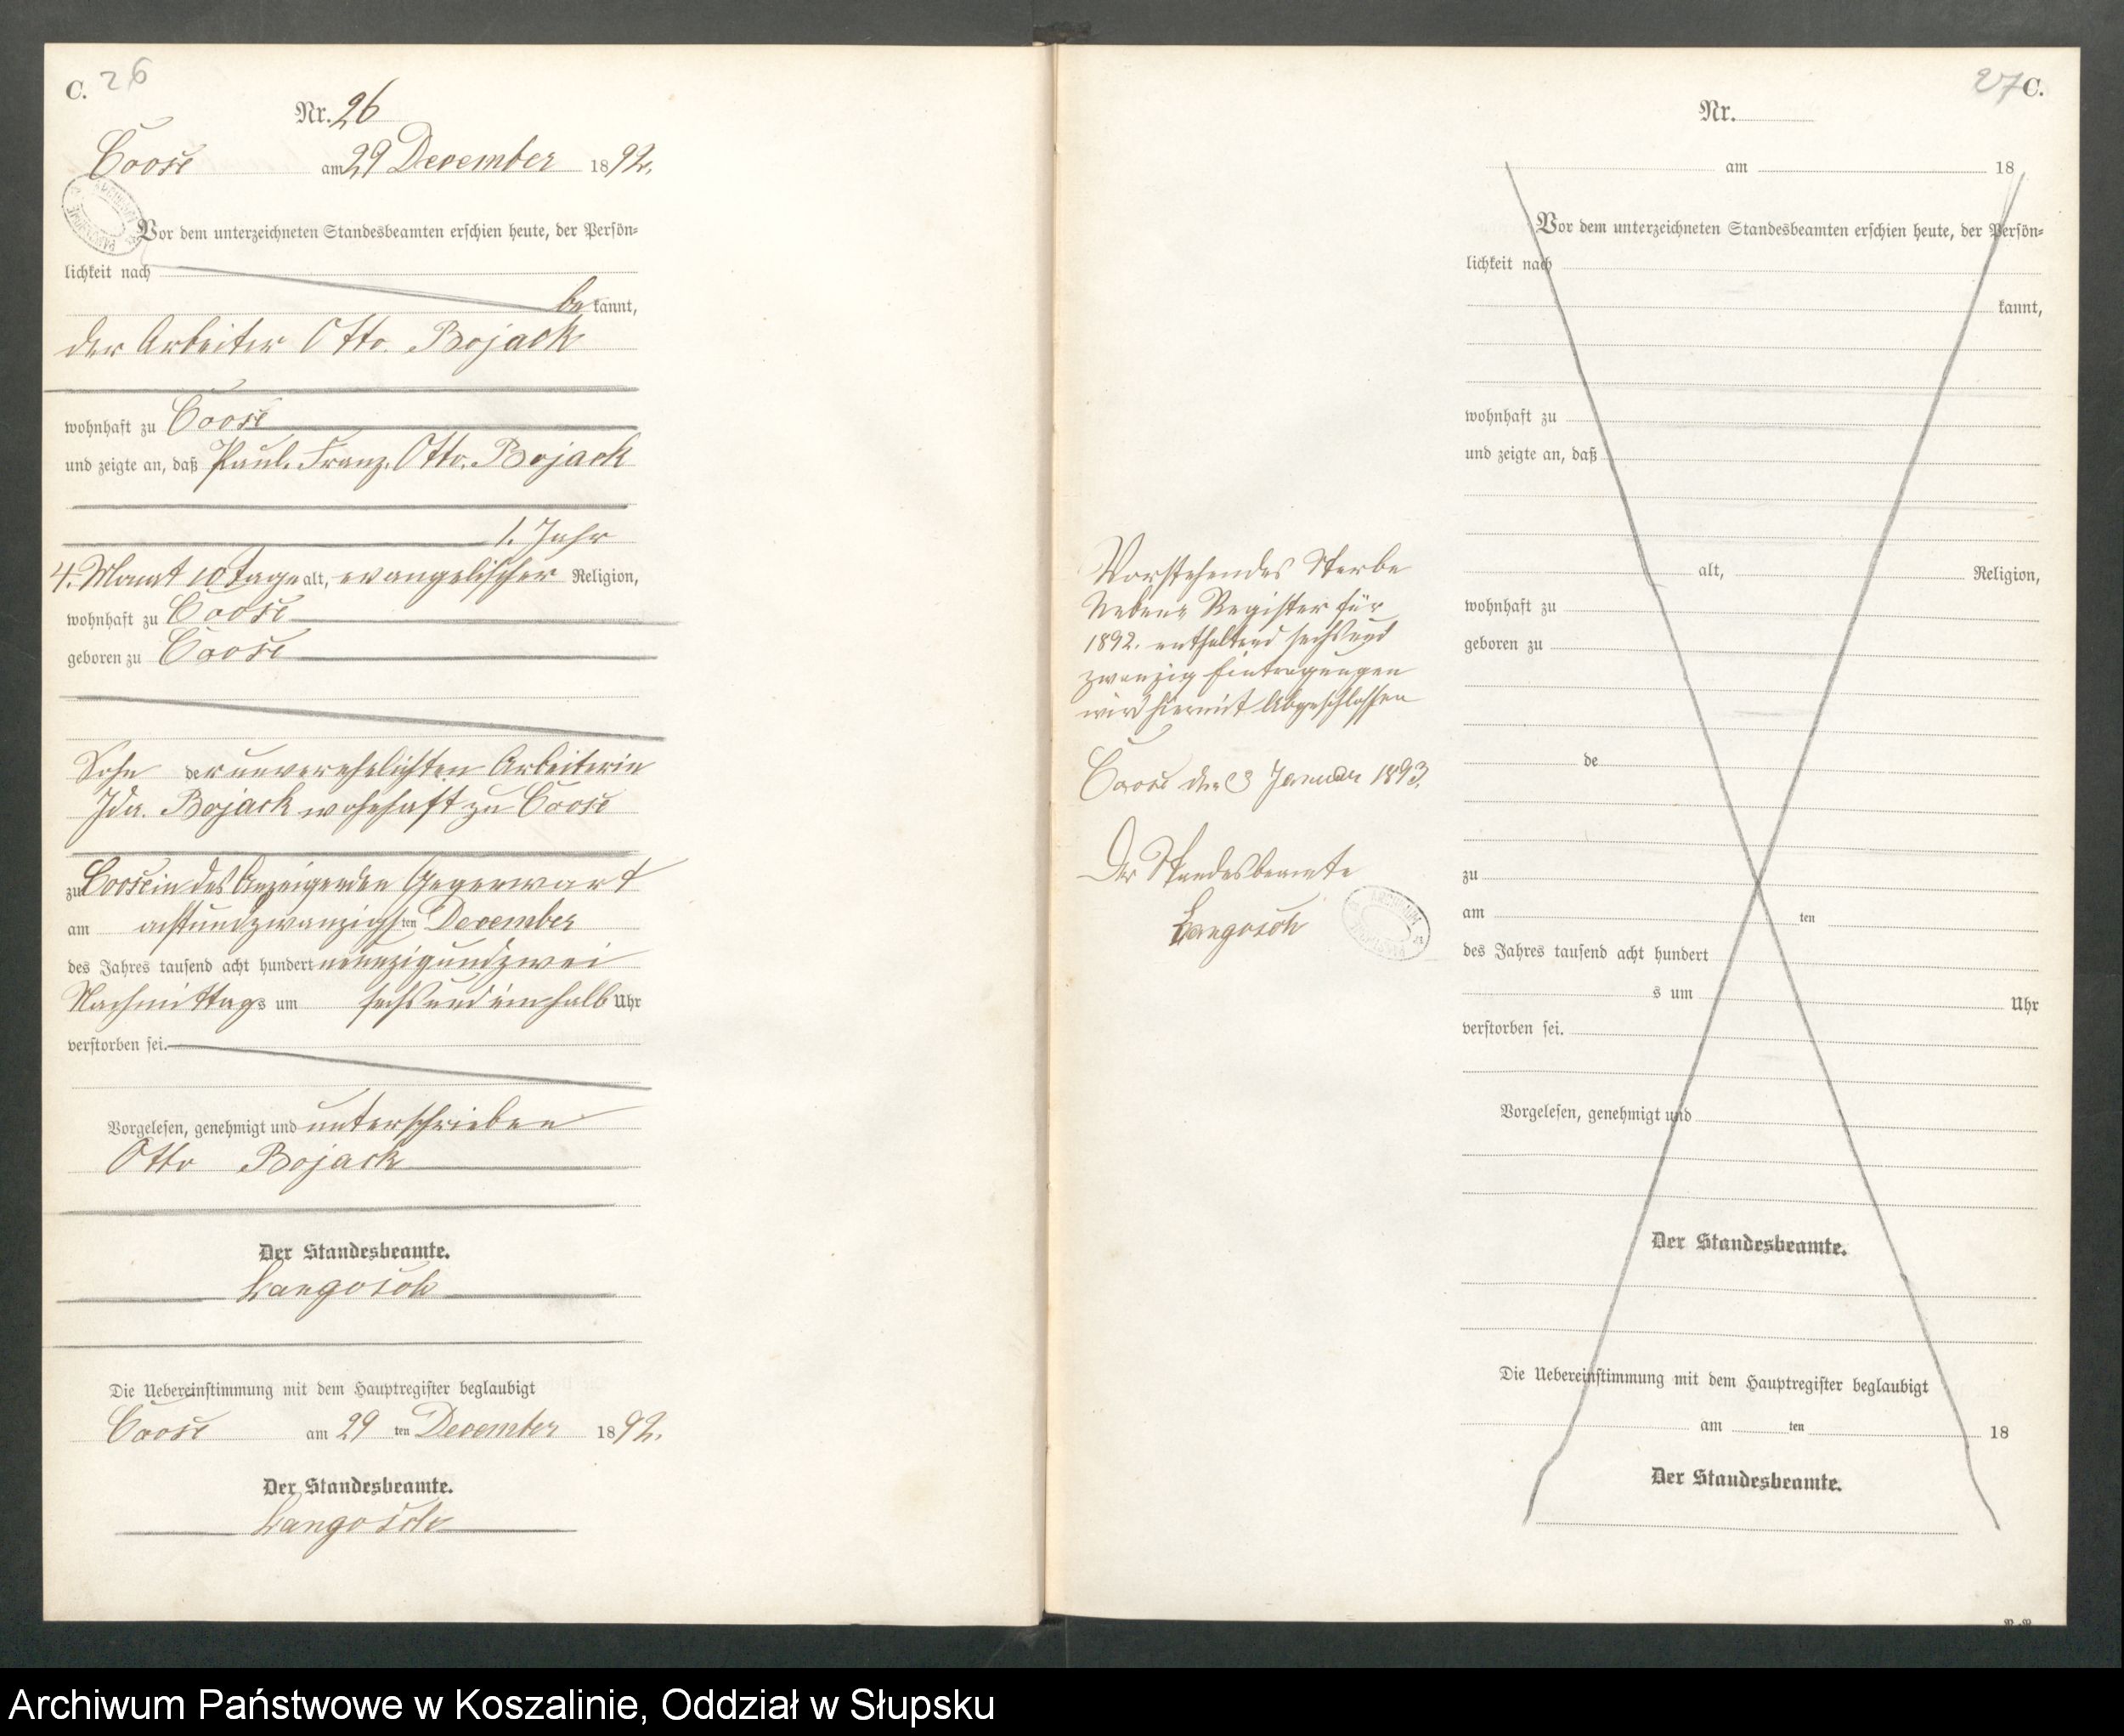 C. 26
Nr. 26
Coose am 29 December 1892.
Vor dem unterzeichneten Standesbeamten erschien heute, der Persön-
lichkeit nach
be kannt,
der Arbeiter Otto. Bojack
wohnhaft zu Coose
und zeigte an, daß Paul. Franz. Otto. Bojack
1. Jahr
4. Monat 10 Tage alt, evangelischer Religion,
wohnhaft zu Coose
geboren zu Coose
Sohn der unverehelichten Arbeiterin
Ida. Bojack wohnhaft zu Coose
zu Coose in des Anzeigenden Gegenwart
am achtundzwanzigsten December
des Jahres tausend acht hundert neunzigundzwei
Nachmittags um sechs und ein halb Uhr
verstorben sei.
Vorgelesen, genehmigt und unterschrieben
Otto Bojack
Der Standesbeamte.
Langosch
Die Uebereinstimmung mit dem Hauptregister beglaubigt
Coose am 29 ten December 1892.
Der Standesbeamte.
Langosch
Vorstehendes Sterbe
Neben Register für
1892. enthaltend sechs und
zwanzig Eintragungen
wird hiermit Abgeschlossen
Coose den 3 Januar 1893.
Der Standesbeamte
Langosch
27 C.
Nr.
am 18
Vor dem unterzeichneten Standesbeamten erschien heute, der Persön-
lichkeit nach
kannt,
wohnhaft zu
und zeigte an, daß
alt, Religion,
wohnhaft zu
geboren zu
de
zu
am ten
des Jahres tausend acht hundert
s um Uhr
verstorben sei.
Vorgelesen, genehmigt und
Der Standesbeamte.
Die Uebereinstimmung mit dem Hauptregister beglaubigt
am ten 18
Der Standesbeamte.
Archiwum Państwowe w Koszalinie, Oddział w Słupsku